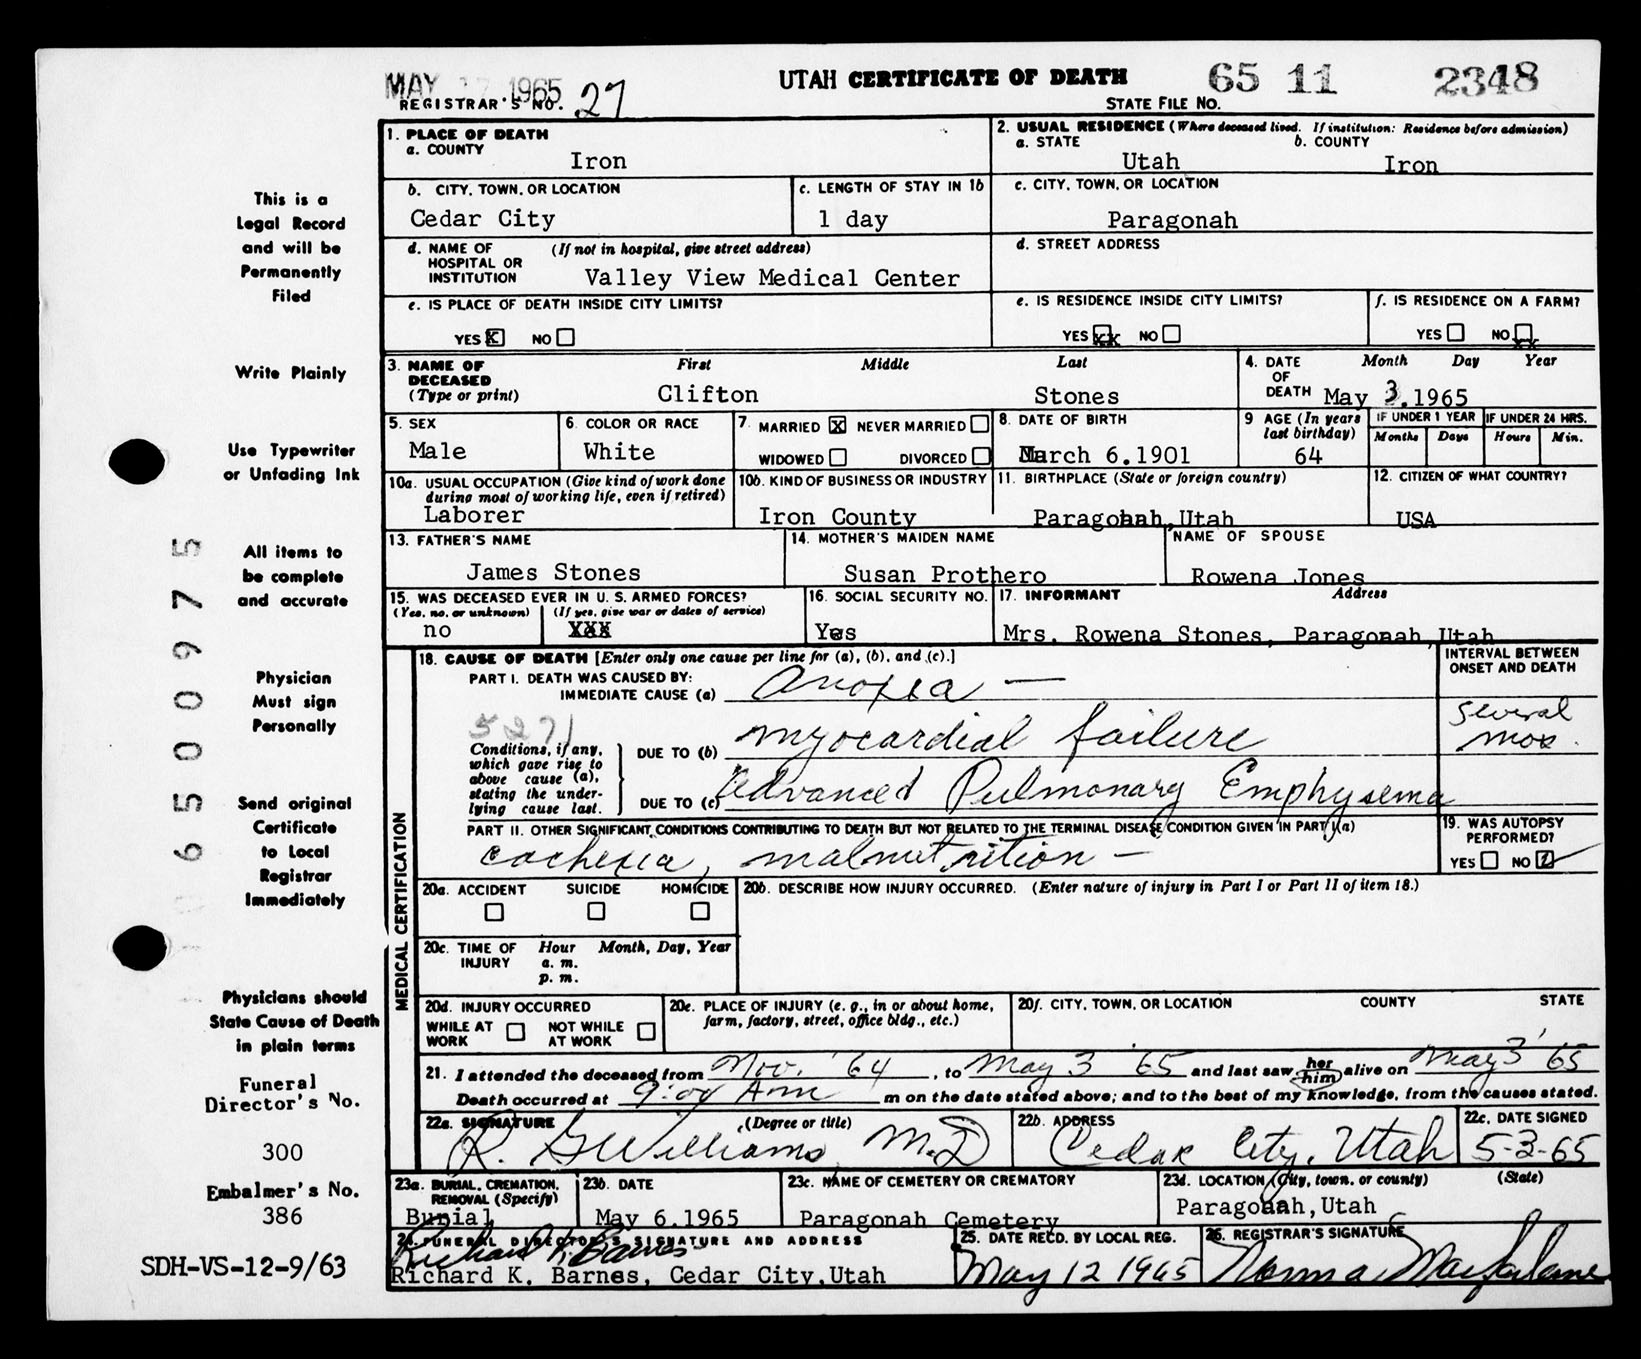 MAY 17 1965
UTAH CERTIFICATE OF DEATH
65 11 2348
REGISTRAR'S NO. 27
STATE FILE NO.
This is a
Legal Record
and will be
Permanently
Filed
Write Plainly
Use Typewriter
or Unfading Ink
All items to
be complete
and accurate
Physician
Must sign
Personally
Send original
Certificate
to Local
Registrar
Immediately
Physicians should
State Cause of Death
in plain terms
Funeral
Director's No.
300
Embalmer's No.
386
SDH-VS-12-9/63
06500975
1. PLACE OF DEATH
a. COUNTY
Iron
2. USUAL RESIDENCE (Where deceased lived. If institution: Residence before admission)
a. STATE b. COUNTY
Utah Iron
b. CITY, TOWN, OR LOCATION
Cedar City
c. LENGTH OF STAY IN 1b
1 day
c. CITY, TOWN, OR LOCATION
Paragonah
d. NAME OF (If not in hospital, give street address)
HOSPITAL OR
INSTITUTION Valley View Medical Center
d. STREET ADDRESS
e. IS PLACE OF DEATH INSIDE CITY LIMITS?
YES X NO
e. IS RESIDENCE INSIDE CITY LIMITS?
YES xx NO
f. IS RESIDENCE ON A FARM?
YES NO xx
3. NAME OF First Middle Last
DECEASED
(Type or print) Clifton Stones
4. DATE Month Day Year
OF
DEATH May 3.1965
5. SEX
Male
6. COLOR OR RACE
White
7. MARRIED X NEVER MARRIED
WIDOWED DIVORCED
8. DATE OF BIRTH
March 6.1901
9 AGE (In years
last birthday)
64
IF UNDER 1 YEAR IF UNDER 24 HRS.
Months Days Hours Min.
10a. USUAL OCCUPATION (Give kind of work done
during most of working life, even if retired)
Laborer
10b. KIND OF BUSINESS OR INDUSTRY
Iron County
11. BIRTHPLACE (State or foreign country)
Paragonah, Utah
12. CITIZEN OF WHAT COUNTRY?
USA
13. FATHER'S NAME
James Stones
14. MOTHER'S MAIDEN NAME
Susan Prothero
NAME OF SPOUSE
Rowena Jones
15. WAS DECEASED EVER IN U. S. ARMED FORCES?
(Yes, no, or unknown) (If yes, give war or dates of service)
no XXX
16. SOCIAL SECURITY NO.
Yes
17. INFORMANT Address
Mrs. Rowena Stones, Paragonah, Utah
MEDICAL CERTIFICATION
18. CAUSE OF DEATH [Enter only one cause per line for (a), (b), and (c).]
INTERVAL BETWEEN
ONSET AND DEATH
PART I. DEATH WAS CAUSED BY:
IMMEDIATE CAUSE (a) Anoxia —
5271
Conditions, if any,
which gave rise to
above cause (a),
stating the under-
lying cause last.
DUE TO (b) myocardial failure
several
mos.
DUE TO (c) Advanced Pulmonary Emphysema
PART II. OTHER SIGNIFICANT CONDITIONS CONTRIBUTING TO DEATH BUT NOT RELATED TO THE TERMINAL DISEASE CONDITION GIVEN IN PART I (a)
cachexia, malnutrition —
19. WAS AUTOPSY
PERFORMED?
YES NO
20a. ACCIDENT SUICIDE HOMICIDE
20b. DESCRIBE HOW INJURY OCCURRED. (Enter nature of injury in Part I or Part II of item 18.)
20c. TIME OF Hour Month, Day, Year
INJURY a. m.
p. m.
20d. INJURY OCCURRED
WHILE AT NOT WHILE
WORK AT WORK
20e. PLACE OF INJURY (e. g., in or about home,
farm, factory, street, office bldg., etc.)
20f. CITY, TOWN, OR LOCATION COUNTY STATE
21. I attended the deceased from Nov. '64, to May 3 '65 and last saw her him alive on May 3 '65
Death occurred at 9:04 Am m on the date stated above; and to the best of my knowledge, from the causes stated.
22a. SIGNATURE (Degree or title)
R. G Williams, M.D
22b. ADDRESS
Cedar City, Utah
22c. DATE SIGNED
5-3-65
23a. BURIAL, CREMATION,
REMOVAL (Specify)
Burial
23b. DATE
May 6.1965
23c. NAME OF CEMETERY OR CREMATORY
Paragonah Cemetery
23d. LOCATION (City, town, or county) (State)
Paragonah, Utah
24. FUNERAL DIRECTOR'S SIGNATURE AND ADDRESS
Richard K. Barnes
Richard K. Barnes, Cedar City, Utah
25. DATE RECD. BY LOCAL REG.
May 12 1965
26. REGISTRAR'S SIGNATURE
Norma Macfarlane